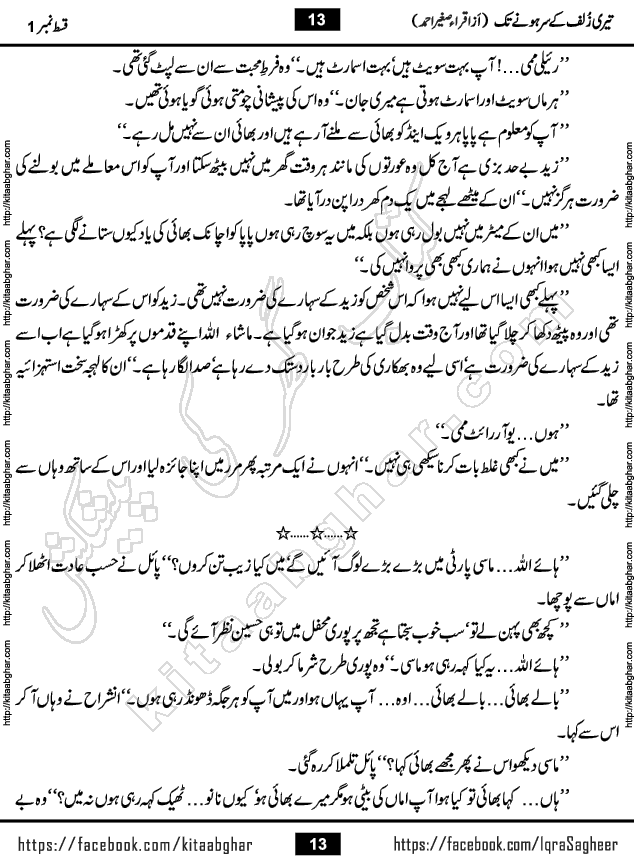 تیری زُلف کے سر ہونے تک (از اقراء صغیر احمد) 13 قسط نمبر 1
’’رئیلی ممی...! آپ بہت سویٹ ہیں‘ بہت اسمارٹ ہیں۔‘‘ وہ فرطِ محبت سے ان سے لپٹ گئی تھی۔
’’ہر ماں سویٹ اور اسمارٹ ہوتی ہے میری جان۔‘‘ وہ اس کی پیشانی چومتی ہوئی گویا ہوئی تھیں۔
’’آپ کو معلوم ہے پاپا ہر ویک اینڈ کو بھائی سے ملنے آ رہے ہیں اور بھائی ان سے نہیں مل رہے۔‘‘
’’زید بے حد بزی ہے آج کل وہ عورتوں کی مانند ہر وقت گھر میں نہیں بیٹھ سکتا اور آپ کو اس معاملے میں بولنے کی
ضرورت ہرگز نہیں۔‘‘ ان کے میٹھے لہجے میں یک دم کھردرا پن در آیا تھا۔
’’میں ان کے میٹر میں نہیں بول رہی ہوں بلکہ میں یہ سوچ رہی ہوں پاپا کو اچانک بھائی کی یاد کیوں ستانے لگی ہے؟ پہلے
ایسا کبھی نہیں ہوا انہوں نے ہماری کبھی بھی پروا نہیں کی۔‘‘
’’پہلے کبھی ایسا اس لیے نہیں ہوا کہ اس شخص کو زید کے سہارے کی ضرورت نہیں تھی۔ زید کو اس کے سہارے کی ضرورت
تھی اور وہ پیٹھ دکھا کر چلا گیا تھا اور آج وقت بدل گیا ہے زید جوان ہو گیا ہے۔ ماشاء اللہ اپنے قدموں پر کھڑا ہو گیا ہے اب اسے
زید کے سہارے کی ضرورت ہے‘ اسی لیے وہ بھکاری کی طرح بار بار دستک دے رہا ہے‘ صدا لگا رہا ہے۔‘‘ ان کا لہجہ سخت استہزائیہ
تھا۔
’’ہوں... یو آر رائٹ ممی۔‘‘
’’میں نے کبھی غلط بات کرنا سیکھی ہی نہیں۔‘‘ انہوں نے ایک مرتبہ پھر مرر میں اپنا جائزہ لیا اور اس کے ساتھ وہاں سے
چلی گئیں۔
☆......☆......☆
’’ہائے اللہ... ماسی پارٹی میں بڑے بڑے لوگ آئیں گے‘ میں کیا زیب تن کروں؟‘‘ پائل نے حسب عادت اٹھلا کر
اماں سے پوچھا۔
’’کچھ بھی پہن لے تو‘ سب خوب سجتا ہے تجھ پر پوری محفل میں تو ہی حسین نظر آئے گی۔‘‘
’’ہائے اللہ... یہ کیا کہہ رہی ہو ماسی۔‘‘ وہ پوری طرح شرما کر بولی۔
’’بالے بھائی... بالے بھائی... اوہ... آپ یہاں ہو اور میں آپ کو ہر جگہ ڈھونڈ رہی ہوں۔‘‘ انشراح نے وہاں آ کر
اس سے کہا۔
’’ماسی دیکھو اس نے پھر مجھے بھائی کہا؟‘‘ پائل تلملا کر رہ گئی۔
’’ہاں... کہا بھائی تو کیا ہوا آپ اماں کی بیٹی ہو مگر میرے بھائی ہو‘ کیوں نانو... ٹھیک کہہ رہی ہوں نہ میں؟‘‘ وہ بے
http://kitaabghar.com http://kitaabghar.com http://kitaabghar.com http://kitaabghar.com http://kitaabghar.com http://kitaabghar.com
http://kitaabghar.com http://kitaabghar.com http://kitaabghar.com http://kitaabghar.com http://kitaabghar.com http://kitaabghar.com
کتاب گھر کی پیشکش
kitaabghar.com
https://facebook.com/kitaabghar 13 https://facebook.com/IqraSagheer